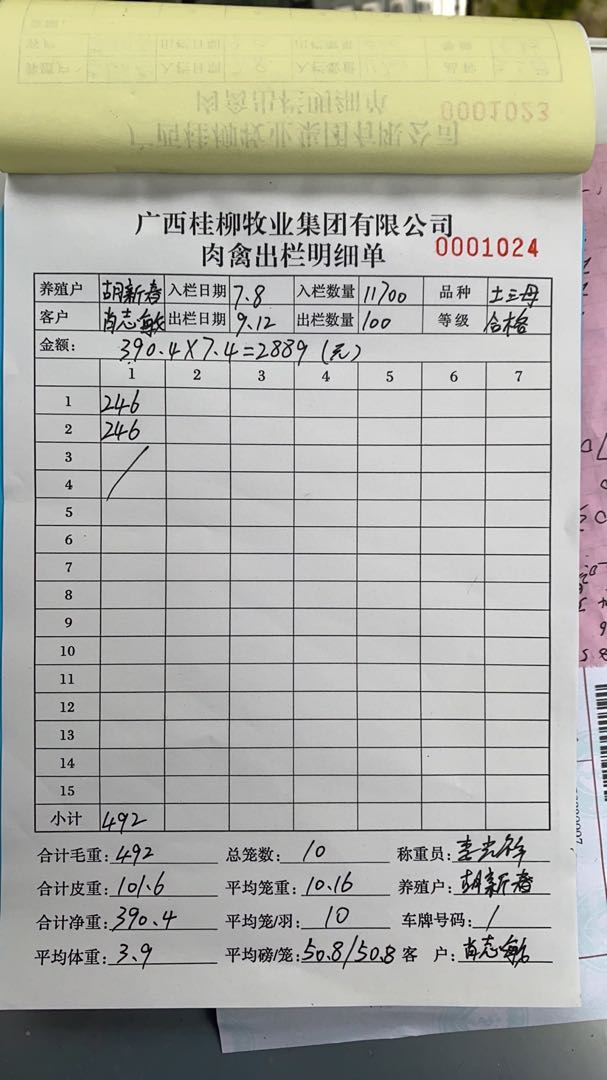 0001023
广西桂柳牧业集团有限公司
肉禽出栏明细单
0001024
养殖户 胡新春 入栏日期 7.8 入栏数量 11700 品种 土三母
客户 肖志敏 出栏日期 9.12 出栏数量 100 等级 合格
金额: 390.4×7.4=2889(元)
1 2 3 4 5 6 7
1 246
2 246
3
4
5
6
7
8
9
10
11
12
13
14
15
小计 492
合计毛重: 492 总笼数: 10 称重员:
合计皮重: 101.6 平均笼重: 10.16 养殖户: 胡新春
合计净重: 390.4 平均笼/羽: 10 车牌号码: /
平均体重: 3.9 平均磅/笼: 50.8/50.8 客 户: 肖志敏